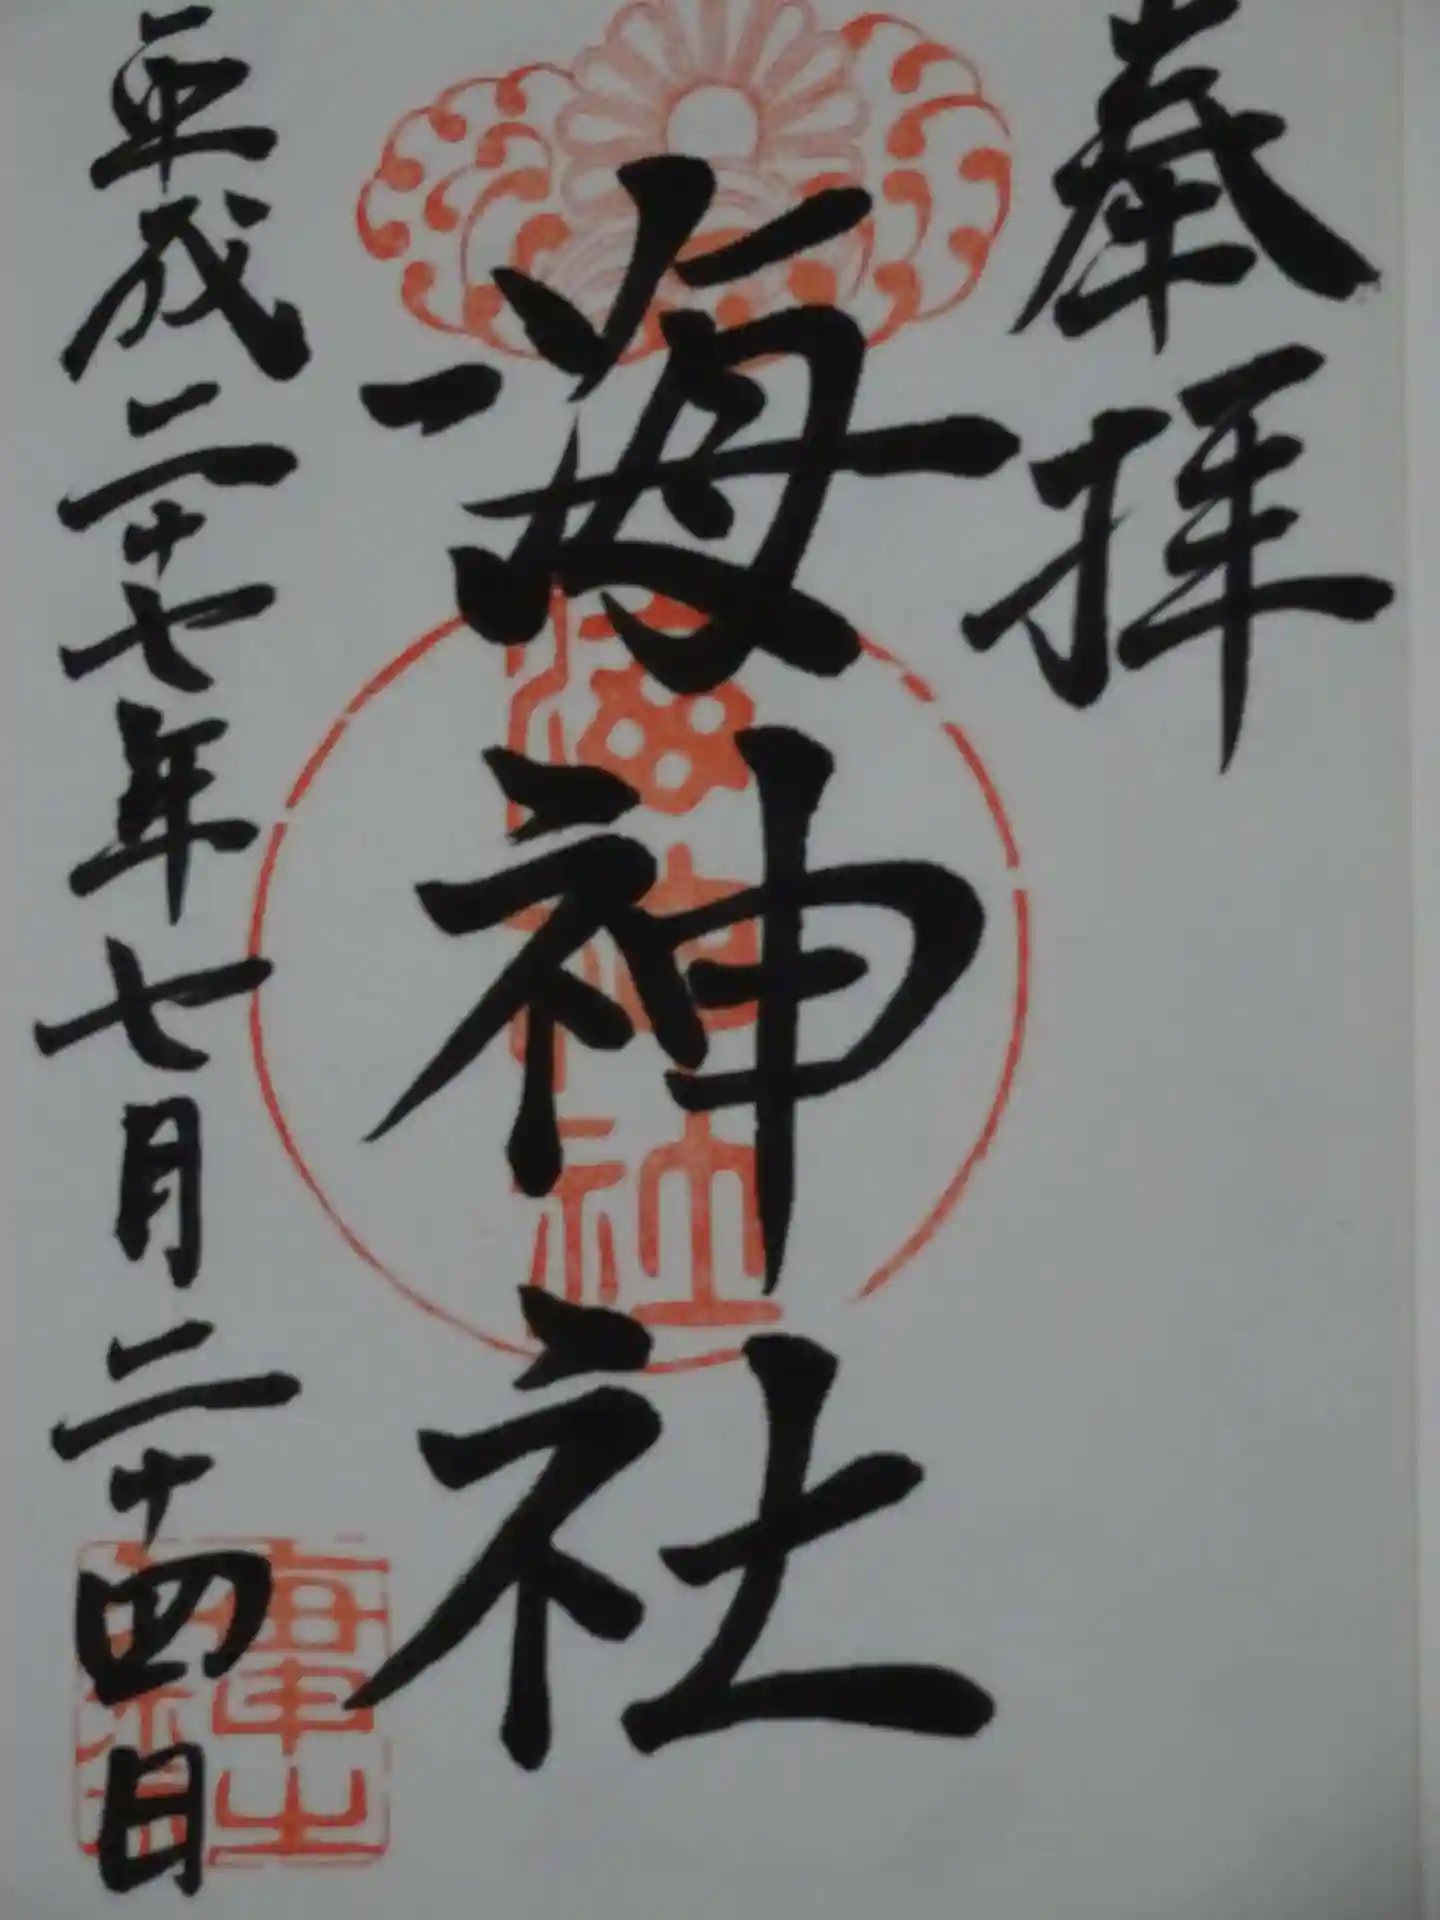 奉拝
海神社
海神社
平成二十七年七月二十四日